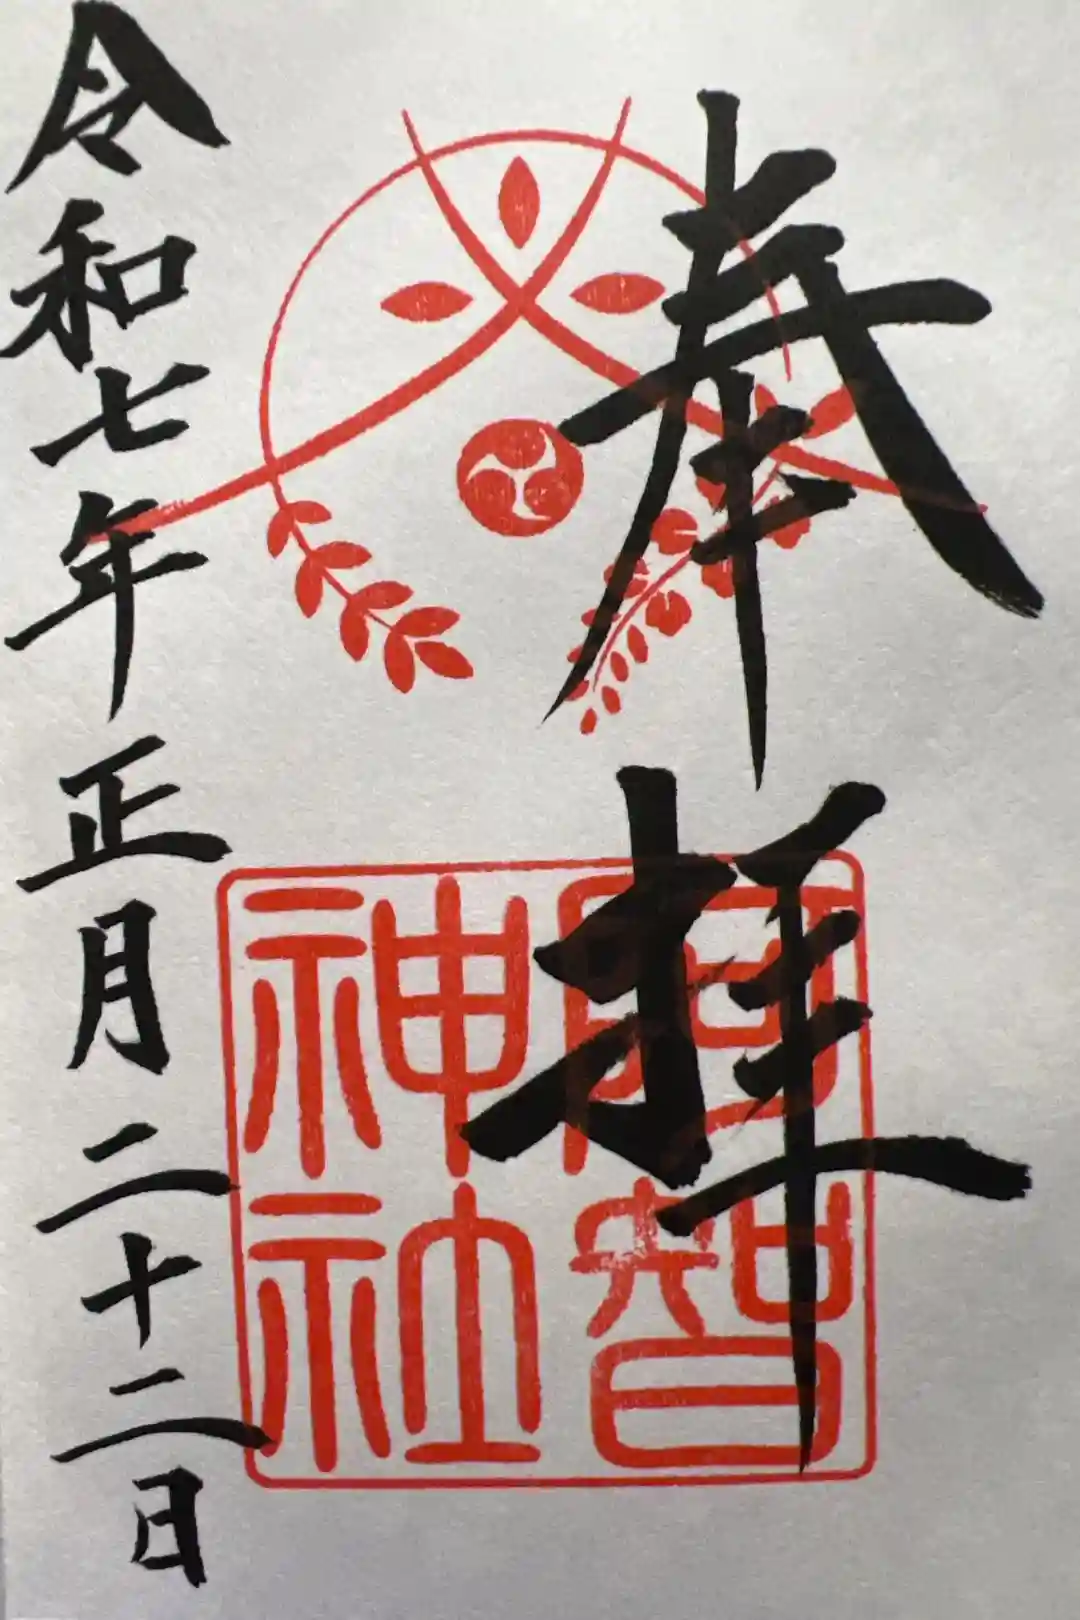 奉拝
阿智
神社
令和七年正月二十二日